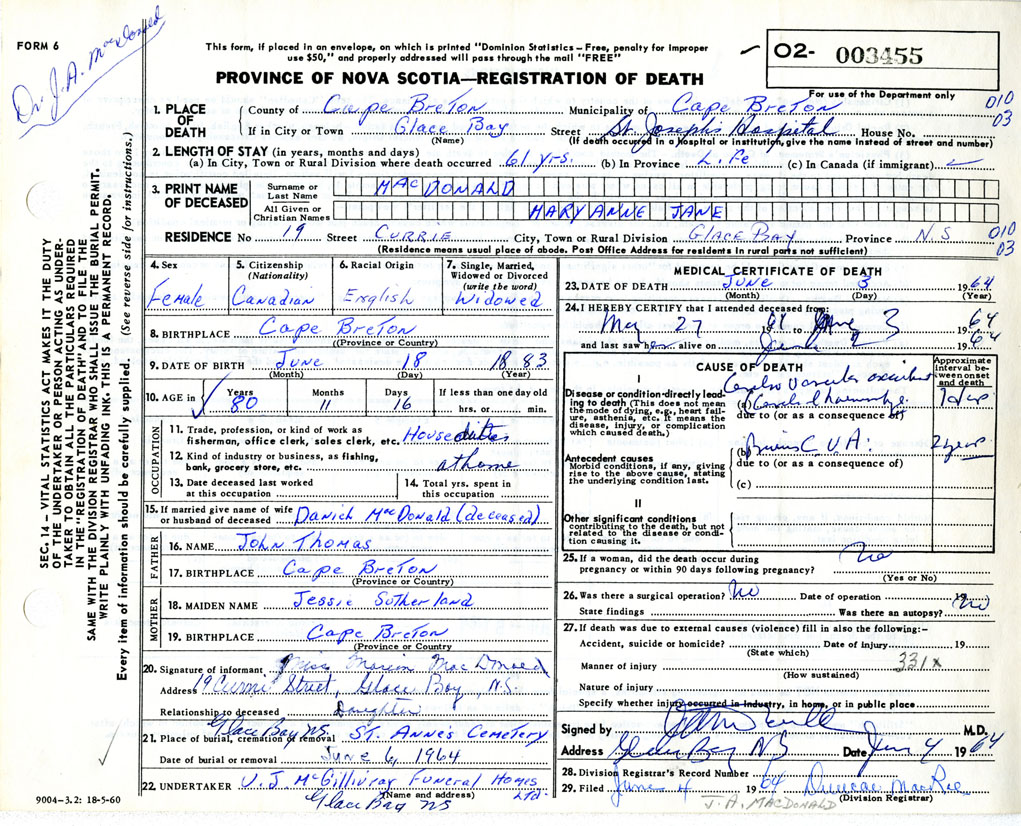 FORM 6
Dr. J. A. MacDonald
This form, if placed in an envelope, on which is printed "Dominion Statistics – Free, penalty for improper
use $50," and properly addressed will pass through the mail "FREE"
PROVINCE OF NOVA SCOTIA—REGISTRATION OF DEATH
02- 003455
For use of the Department only
010
03
1. PLACE OF DEATH County of Cape Breton Municipality of Cape Breton
If in City or Town Glace Bay Street St. Joseph's Hospital House No.
(Name) (If death occurred in a hospital or institution, give the name instead of street and number)
2. LENGTH OF STAY (in years, months and days)
(a) In City, Town or Rural Division where death occurred 61 yrs. (b) In Province Life (c) In Canada (if immigrant)
3. PRINT NAME OF DECEASED
Surname or Last Name MacDONALD
All Given or Christian Names MARY ANNE JANE
RESIDENCE No 19 Street CURRIE City, Town or Rural Division GLACE BAY Province N.S
010
03
(Residence means usual place of abode. Post Office Address for residents in rural parts not sufficient)
4. Sex Female
5. Citizenship (Nationality) Canadian
6. Racial Origin English
7. Single, Married, Widowed or Divorced (write the word) Widowed
8. BIRTHPLACE Cape Breton
(Province or Country)
9. DATE OF BIRTH June 18 1883
(Month) (Day) (Year)
10. AGE in Years 80 Months 11 Days 16 If less than one day old hrs. or min.
OCCUPATION
11. Trade, profession, or kind of work as
fisherman, office clerk, sales clerk, etc. House duties
12. Kind of industry or business, as fishing,
bank, grocery store, etc. at home
13. Date deceased last worked at this occupation
14. Total yrs. spent in this occupation
15. If married give name of wife
or husband of deceased MacDonald (deceased)
FATHER
16. NAME John Thomas
17. BIRTHPLACE Cape Breton
(Province or Country)
MOTHER
18. MAIDEN NAME Jessie Sutherland
19. BIRTHPLACE Cape Breton
(Province or Country)
20. Signature of informant Miss MacDonald
Address 19 Currie Street, Glace Bay N.S.
Relationship to deceased Daughter
Glace Bay NS
21. Place of burial, cremation or removal ST. Anne's Cemetery
Date of burial or removal June 6, 1964
22. UNDERTAKER V. J. McGillivray Funeral Homes Ltd.
(Name and address)
Glace Bay NS
9004–3.2: 18-5-60
MEDICAL CERTIFICATE OF DEATH
23. DATE OF DEATH June 3 1964
(Month) (Day) (Year)
24. I HEREBY CERTIFY that I attended deceased from:
May 27 to June 3 1964
and last saw her alive on June 1964
CAUSE OF DEATH
Approximate interval between onset and death
I
Disease or condition directly leading to death (This does not mean the mode of dying, e.g., heart failure, asthenia, etc. It means the disease, injury, or complication which caused death.)
vascular accident
(a) Cerebral
due to (or as a consequence of)
Antecedent causes
Morbid conditions, if any, giving rise to the above cause, stating the underlying condition last.
(b) Previous C.V.A. 2 years
due to (or as a consequence of)
(c)
II
Other significant conditions
contributing to the death, but not related to the disease or condition causing it.
25. If a woman, did the death occur during
pregnancy or within 90 days following pregnancy? No
(Yes or No)
26. Was there a surgical operation? No Date of operation 19
State findings Was there an autopsy? No
27. If death was due to external causes (violence) fill in also the following:–
Accident, suicide or homicide? Date of injury 19
(State which)
331x
Manner of injury
(How sustained)
Nature of injury
Specify whether injury occurred in industry, in home, or in public place
Signed by M.D.
Address Glace Bay NS Date Jun 4 1964
28. Division Registrar's Record Number
29. Filed June 4 1964 Duncan MacRae
(Division Registrar)
J. A. MACDONALD
SEC. 14 – VITAL STATISTICS ACT MAKES IT THE DUTY
OF THE UNDERTAKER OR PERSON ACTING AS UNDER-
TAKER TO OBTAIN ALL THE PARTICULARS REQUIRED
IN THE "REGISTRATION OF DEATH" AND TO FILE THE
SAME WITH THE DIVISION REGISTRAR WHO SHALL ISSUE THE BURIAL PERMIT.
WRITE PLAINLY WITH UNFADING INK. THIS IS A PERMANENT RECORD.
Every item of information should be carefully supplied. (See reverse side for instructions.)